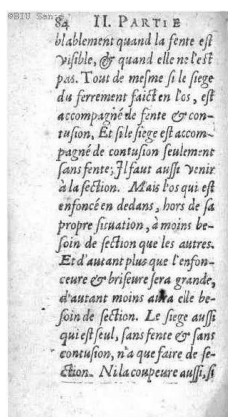 ©BIU San
84 II. PARTIE
blablement quand la fente est
visible, & quand elle ne l'est
pas. Tout de mesme si le siege
du ferrement faict en l'os, est
accompagné de fente & con-
tusion. Et si le siege est accom-
pagné de contusion seulement
sans fente; Il faut aussi venir
à la section. Mais l'os qui est
enfoncé en dedans, hors de sa
propre situation, à moins be-
soin de section que les autres.
Et d'autant plus que l'enfon-
ceure & briseure sera grande,
d'autant moins aura elle be-
soin de section. Le siege aussi
qui est seul, sans fente & sans
contusion, n'a que faire de se-
ction. Ni la coupeure aussi, si